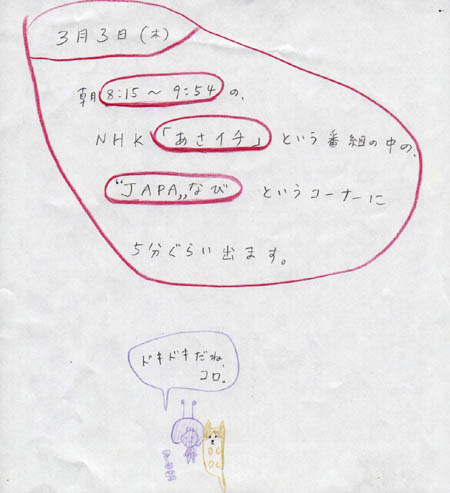 3月3日(木)
朝8:15〜9:54の、
NHK「あさイチ」という番組の中の、
“JAPA„なびというコーナーに
5分ぐらい出ます。
ドキドキだね、
コロ。